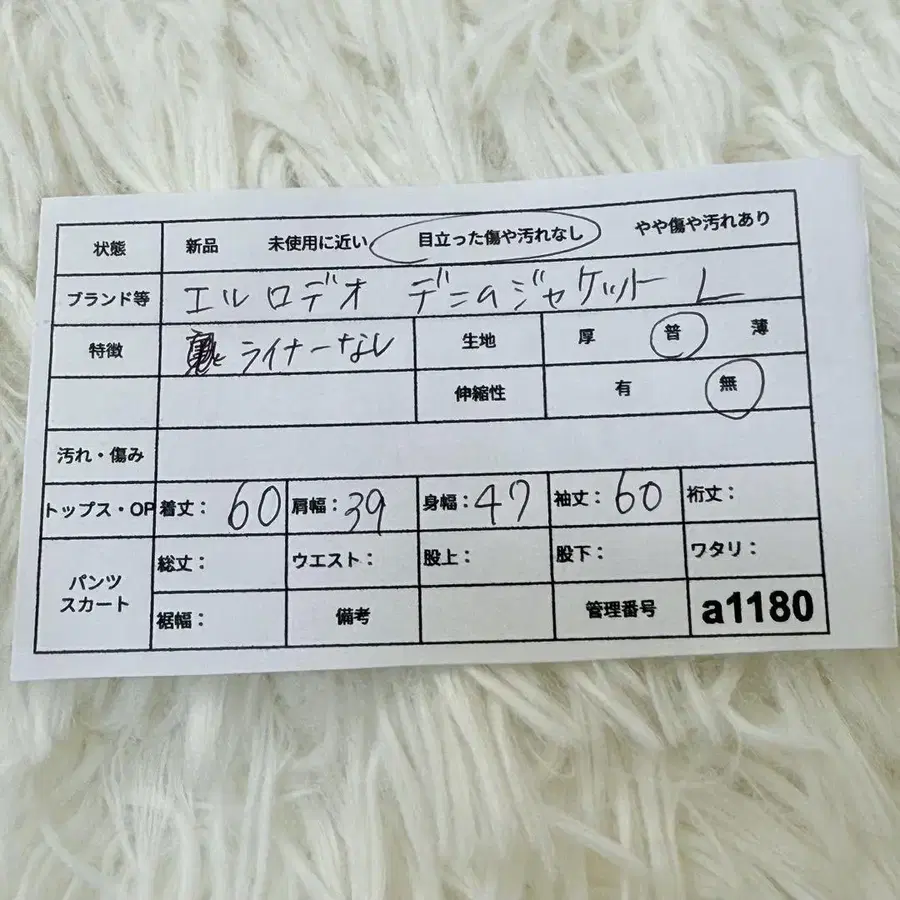 状態 新品 未使用に近い 目立った傷や汚れなし やや傷や汚れあり
ブランド等 エルロデオ デニムジャケット L
特徴 ライナーなし 生地 厚 普 薄
伸縮性 有 無
汚れ・傷み
トップス・OP 着丈: 60 肩幅: 39 身幅: 47 袖丈: 60 裄丈:
パンツ
スカート
総丈: ウエスト: 股上: 股下: ワタリ:
裾幅: 備考 管理番号 a1180